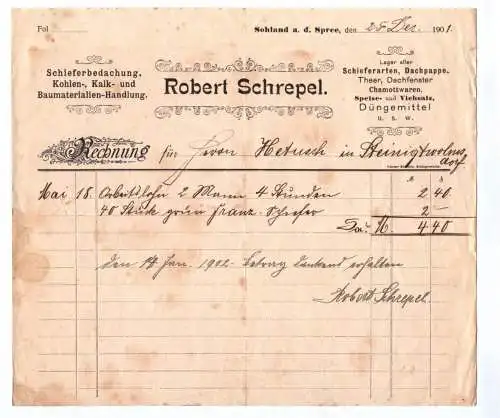 Fol
Sohland a. d. Spree, den 28 Dez. 1901.
Schieferbedachung,
Kohlen-, Kalk- und
Baumaterialien-Handlung.
Robert Schrepel.
Lager aller
Schieferarten, Dachpappe,
Theer, Dachfenster
Chamottwaren,
Speise- und Viehsalz,
Düngemittel
u. s. w.
Rechnung für Herrn Hetusch in Steinigtwolms
dorf
Mai 18. Arbeitslohn 2 Mann 4 Stunden 2 40
40 Stück grün Franz. Schiefer 2 —
Sa: M. 4 40
Den 14 Jan. 1902 Betrag dankend erhalten
Robert Schrepel